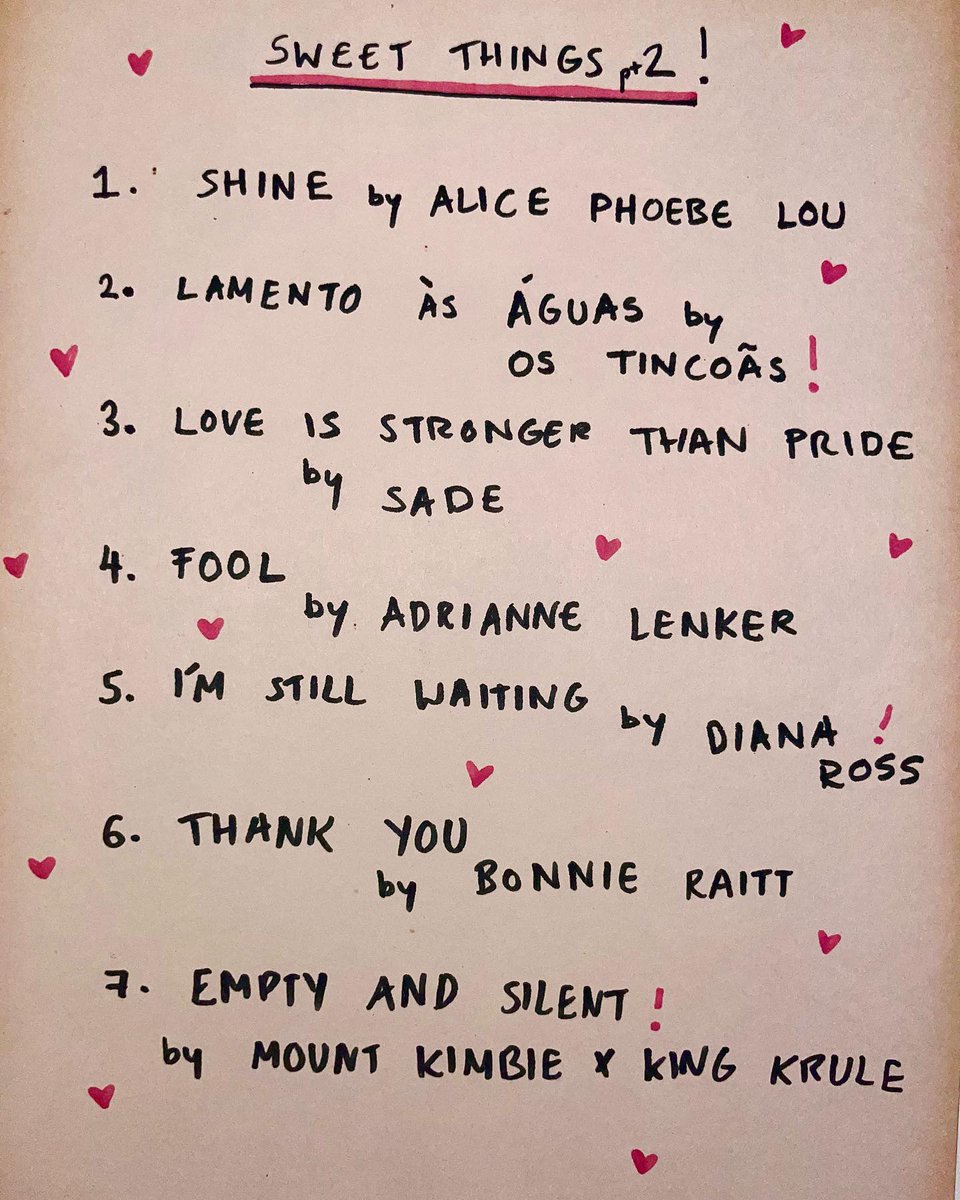 SWEET THINGS pt2!
1. SHINE by ALICE PHOEBE LOU
2. LAMENTO ÀS ÁGUAS by
OS TINCOÃS!
3. LOVE IS STRONGER THAN PRIDE
by SADE
4. FOOL
by ADRIANNE LENKER
5. I'M STILL WAITING by DIANA!
ROSS
6. THANK YOU
by BONNIE RAITT
7. EMPTY AND SILENT!
by MOUNT KIMBIE x KING KRULE